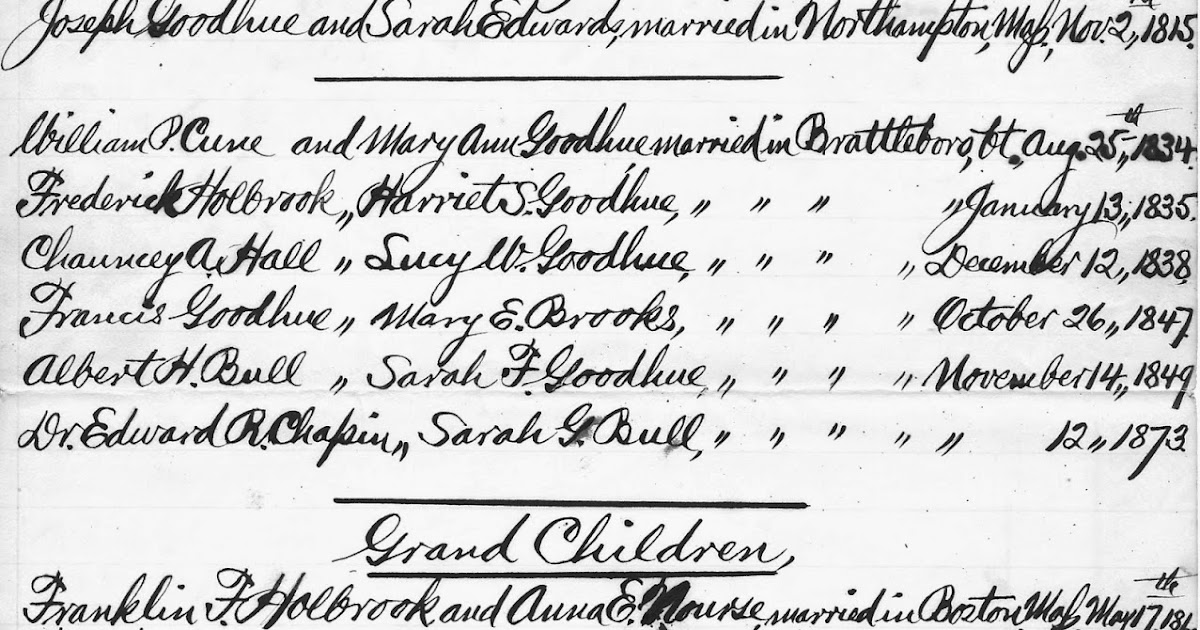 Joseph Goodhue and Sarah Edwards, married in Northampton, Maſs, Nov. 2nd, 1815.
William P. Cune and Mary Ann Goodhue married in Brattleboro, Vt., Aug. 25th, 1834.
Frederick Holbrook „ Harriet S. Goodhue, „ „ „ „ January 13, 1835.
Chauncey A. Hall „ Lucy W. Goodhue, „ „ „ „ December 12, 1838.
Francis Goodhue „ Mary E. Brooks, „ „ „ „ October 26, 1847.
Albert H. Bull „ Sarah F. Goodhue, „ „ „ „ November 14, 1849.
Dr. Edward R. Chapin „ Sarah G. Bull, „ „ „ „ „ 12, 1873.
Grand Children,
Franklin F. Holbrook and Anna E. Nourse, married in Boston, Maſs, May 17th,